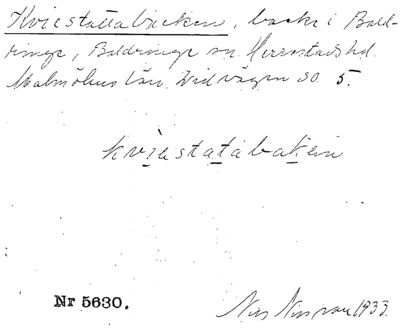 Kviestättabacken, backe i Bald-
ringe, Baldringe sn. Herrestads hd.
Malmöhus län. Vid vägen SO. 5.
kviestatabaken
Nr 5630.
Nils Nilsson 1933.